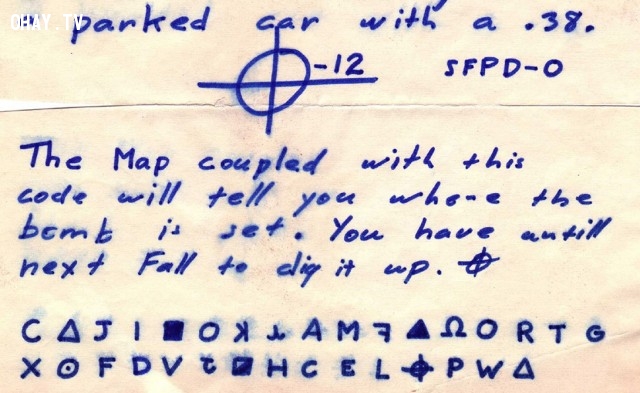 OHAY.TV
parked car with a .38.
-12 SFPD-0
The Map coupled with this
code will tell you where the
bomb is set. You have untill
next Fall to dig it up. ⌖
C Δ J I ■ O ꓘ Ʇ A M ꟻ ▲ Ω O R T G
X ⊙ F D V ⅂ ◪ H C E L ⌖ P W Δ